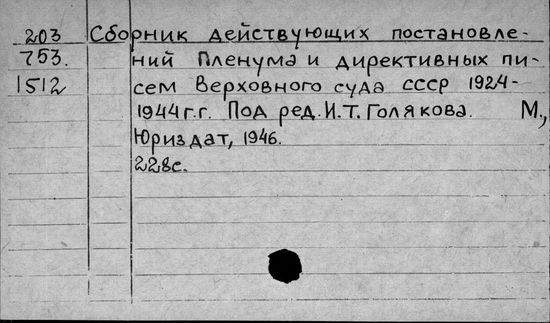 203 Сборник действующих постановле-
753. ний Пленума и директивных пи-
1512 сем Верховного суда СССР 1924-
1944г.г. Под ред. И.Т.Голякова. М.,
Юриздат, 1946.
228с.